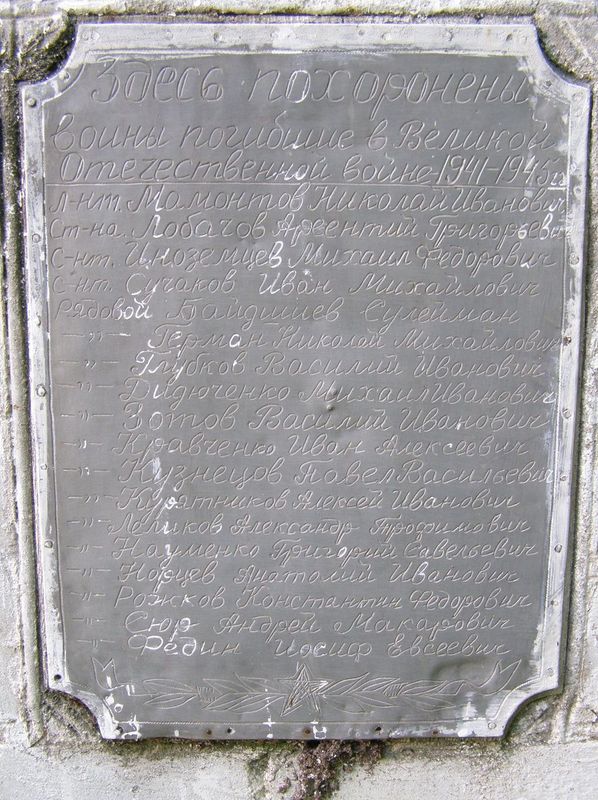 Здесь похоронены
воины погибшие в Великой
Отечественной войне 1941-1945гг
л-нт. Мамонтов Николай Иванович
ст-на. Лобачов Арсентий Григорьевич
с-нт. Иноземцев Михаил Федорович
с-нт. Сучаков Иван Михайлович
Рядовой Байдишев Сулейман
-"- Герман Николай Михайлович
-"- Глубков Василий Иванович
-"- Дидюченко Михаил Иванович
-"- Зотов Василий Иванович
-"- Кравченко Иван Алексеевич
-"- Кузнецов Павел Васильевич
-"- Курятников Алексей Иванович
-"- Лоликов Александр Трофимович
-"- Науменко Григорий Савельевич
-"- Норцев Анатолий Иванович
-"- Рожков Константин Федорович
-"- Сюр Андрей Макарович
-"- Федин Иосиф Евсеевич